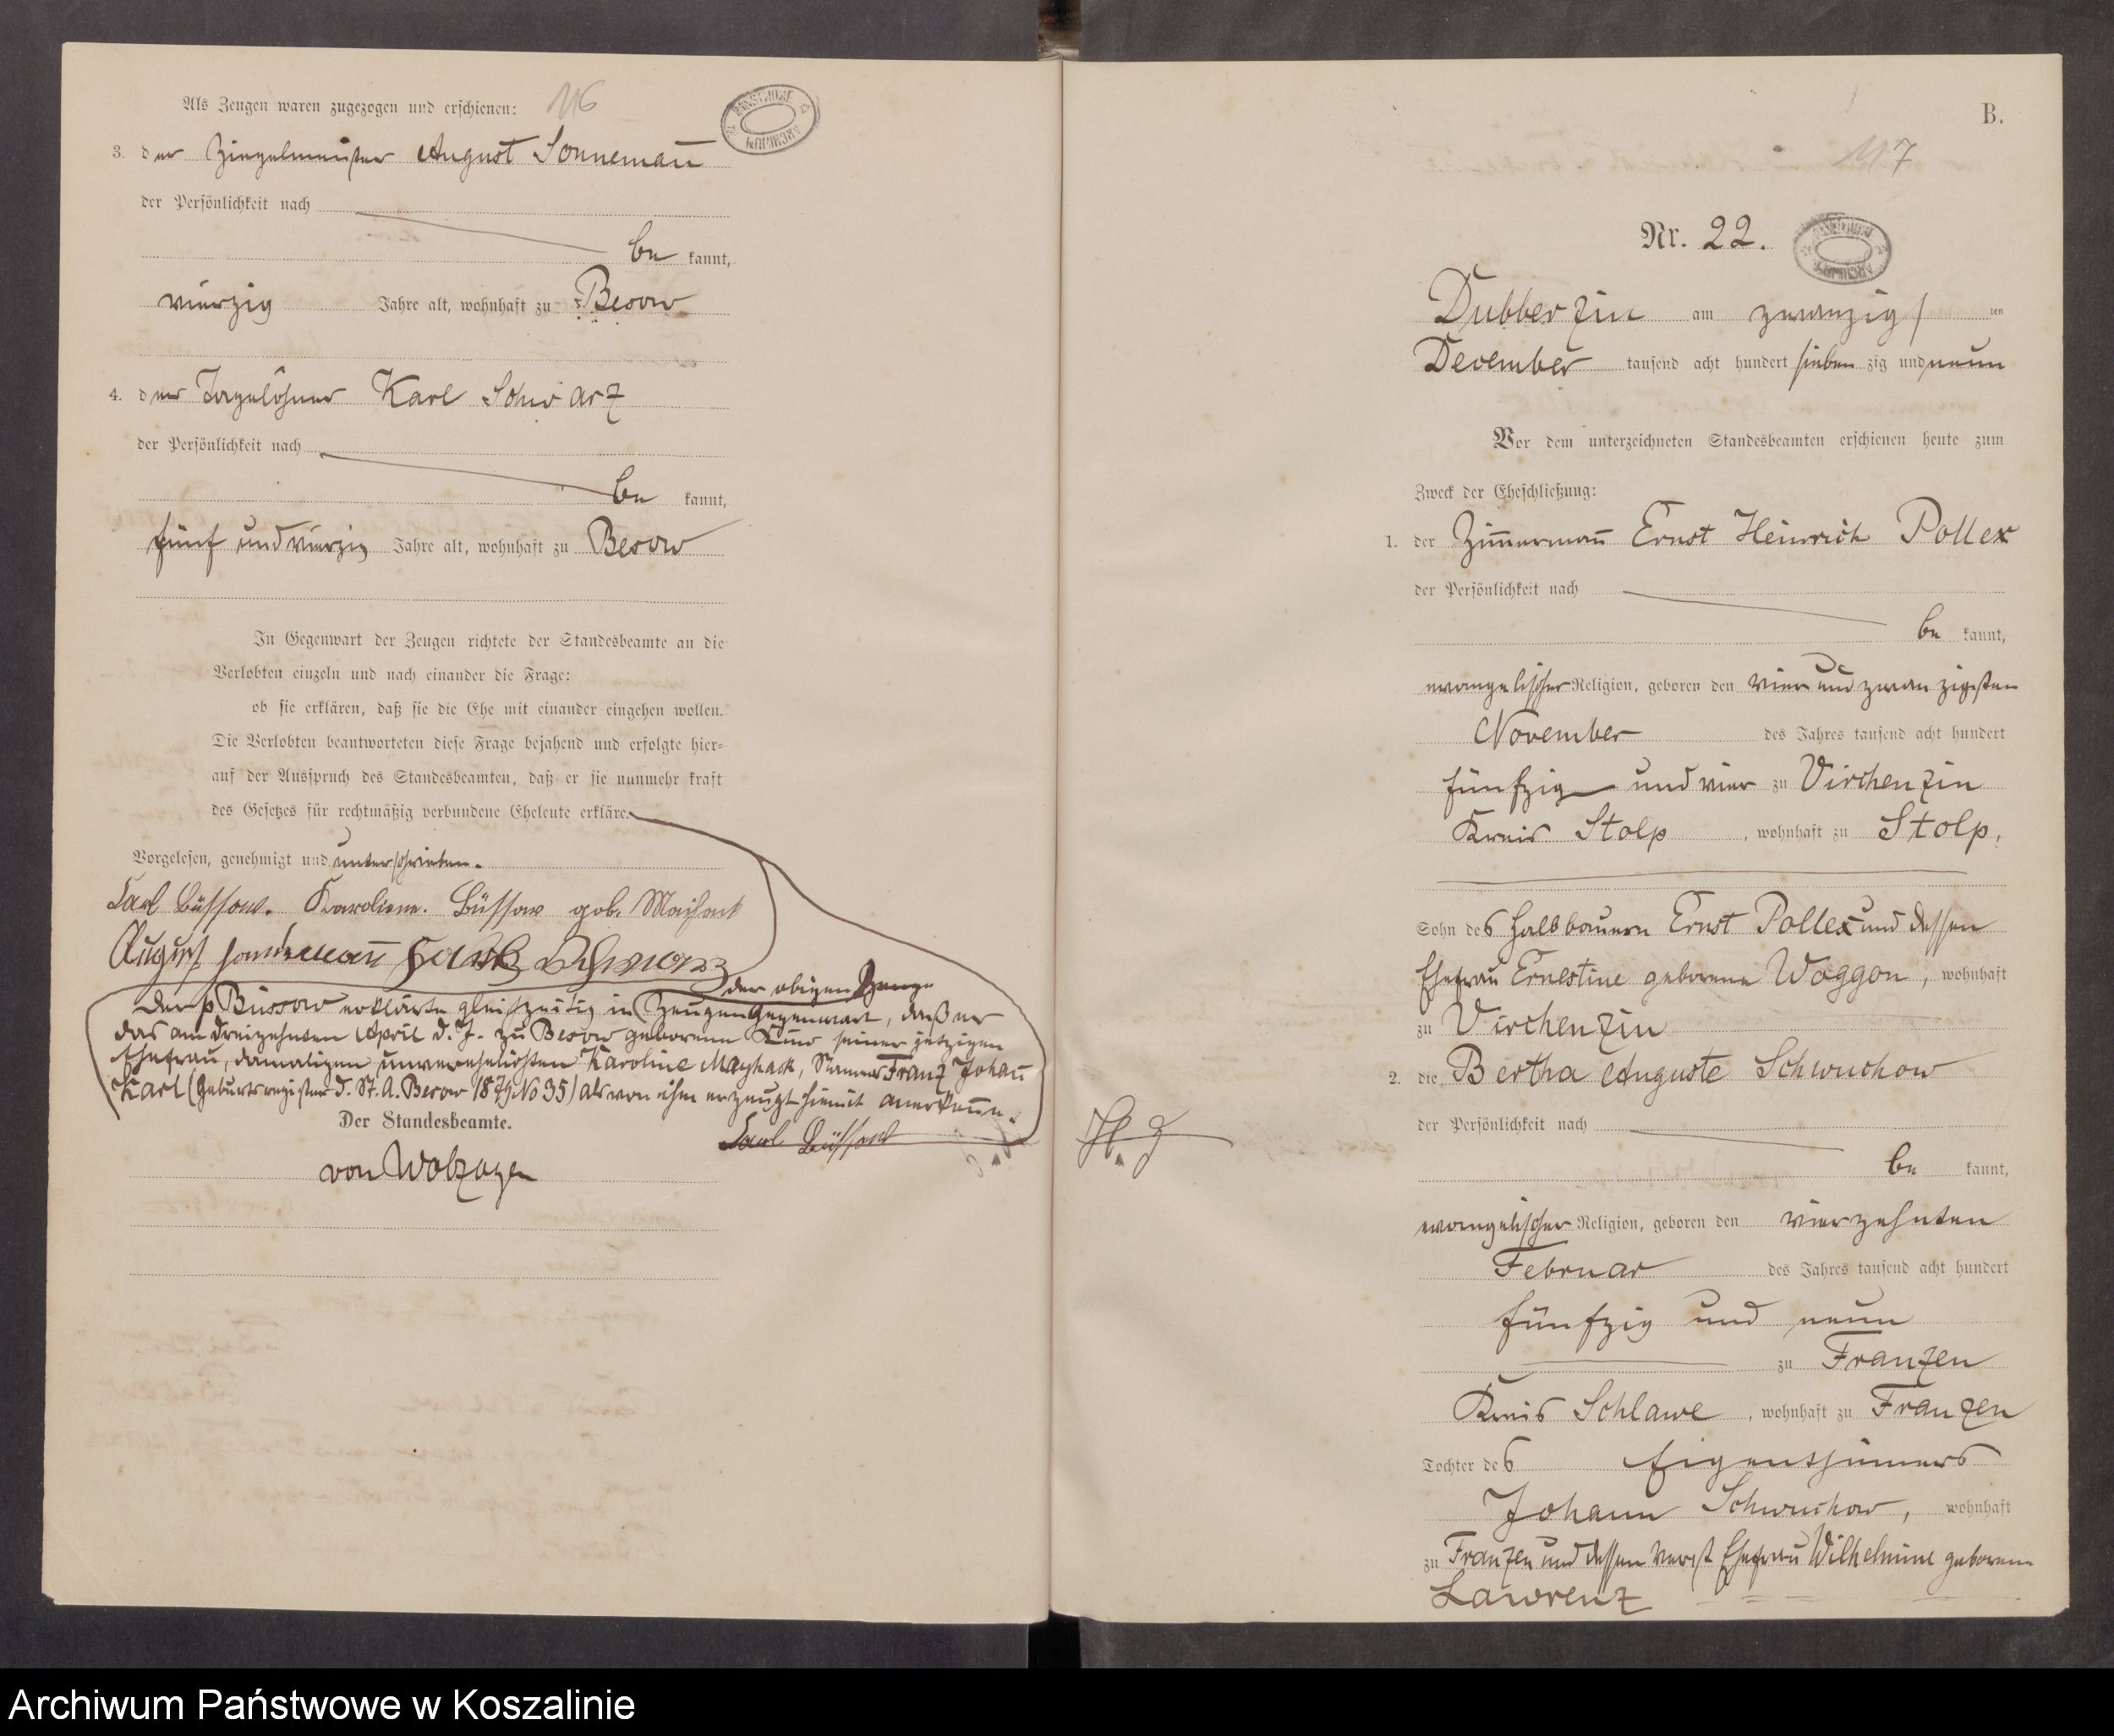 116
Als Zeugen waren zugezogen und erschienen:
3. der Ziegelmeister August Sonnemañ
der Persönlichkeit nach
be kannt,
vierzig Jahre alt, wohnhaft zu Besow
4. der Tagelöhner Karl Schwarz
der Persönlichkeit nach
be kannt,
fünf und vierzig Jahre alt, wohnhaft zu Besow
In Gegenwart der Zeugen richtete der Standesbeamte an die
Verlobten einzeln und nach einander die Frage:
ob sie erklären, daß sie die Ehe mit einander eingehen wollen.
Die Verlobten beantworteten diese Frage bejahend und erfolgte hier-
auf der Ausspruch des Standesbeamten, daß er sie nunmehr kraft
des Gesetzes für rechtmäßig verbundene Eheleute erkläre.
Vorgelesen, genehmigt und unterschrieben.
Carl Büssow. Karoline. Büssow geb. Maihack
August Sonnemañ Karl Schwarz
der obigen Zeugen
Der p Büssow erklärte gleichzeitig in Gegenwart, daß er
das am dreizehnten April d. J. zu Besow geborene Kind seiner jetzigen
Ehefrau, damaligen unverehelichten Karoline Mayhack, Namens Franz Johañ
Karl (Geburtsregister d. St. A. Besow 1879 No 35) als von ihm erzeugt hiermit anerkeñe.
Carl Büssow
Der Standesbeamte.
von Wolzogen
B.
117
Nr. 22.
Dubberzin am zwanzig ten
December tausend acht hundert sieben zig und neun
Vor dem unterzeichneten Standesbeamten erschienen heute zum
Zweck der Eheschließung:
1. der Zim̃ermañ Ernst Heinrich Pollex
der Persönlichkeit nach
be kannt,
evangelischer Religion, geboren den vier und zwanzigsten
November des Jahres tausend acht hundert
fünfzig und vier zu Virchenzin
Kreis Stolp, wohnhaft zu Stolp.
Sohn des Halbbauern Ernst Pollex und dessen
Ehefrau Ernestine geborene Woggon, wohnhaft
zu Virchenzin
2. die Bertha Auguste Schwuchow
der Persönlichkeit nach
be kannt,
evangelischer Religion, geboren den vierzehnten
Februar des Jahres tausend acht hundert
fünfzig und neun
zu Franzen
Kreis Schlawe, wohnhaft zu Franzen
Tochter des Eigenthümers
Johann Schwuchow, wohnhaft
zu Franzen und dessen verst Ehefrau Wilhelmine geborene
Lawrenz
Archiwum Państwowe w Koszalinie